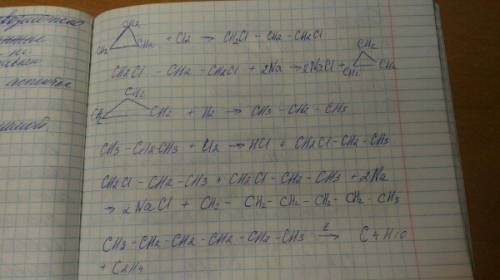 CH2
CH2 CH2 + Cl2 → CH2Cl – CH2 – CH2Cl
CH2
CH2Cl – CH2 – CH2Cl + 2Na → 2NaCl + CH2 CH2
CH2
CH2 CH2 + H2 → CH3 – CH2 – CH3
CH3 – CH2CH3 + Cl2 → HCl + CH2Cl – CH2 – CH3
CH2Cl – CH2 – CH3 + CH2Cl – CH2 – CH3 + 2Na
→ 2NaCl + CH3 – CH2 – CH2 – CH2 – CH2 – CH3
CH3 – CH2 – CH2 – CH2 – CH2 – CH3 t→ C4H10
+ C2H4